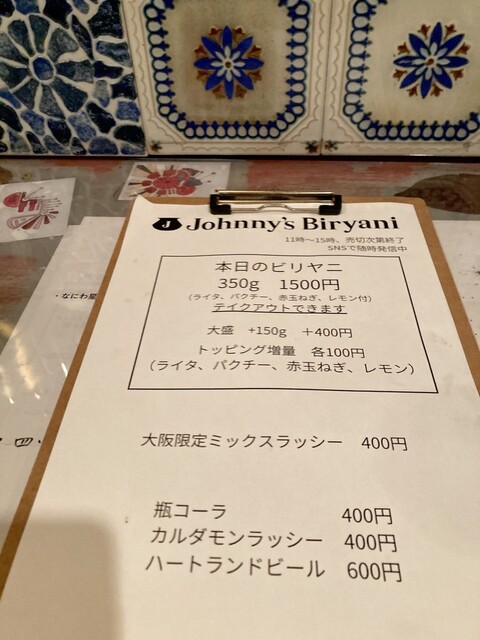 J Johnny's Biryani
11時〜15時、売切次第終了
SNSで随時発信中
本日のビリヤニ
350g 1500円
(ライタ、パクチー、赤玉ねぎ、レモン付)
テイクアウトできます
大盛 +150g +400円
トッピング増量 各100円
(ライタ、パクチー、赤玉ねぎ、レモン)
大阪限定ミックスラッシー 400円
瓶コーラ 400円
カルダモンラッシー 400円
ハートランドビール 600円
・なにわ星